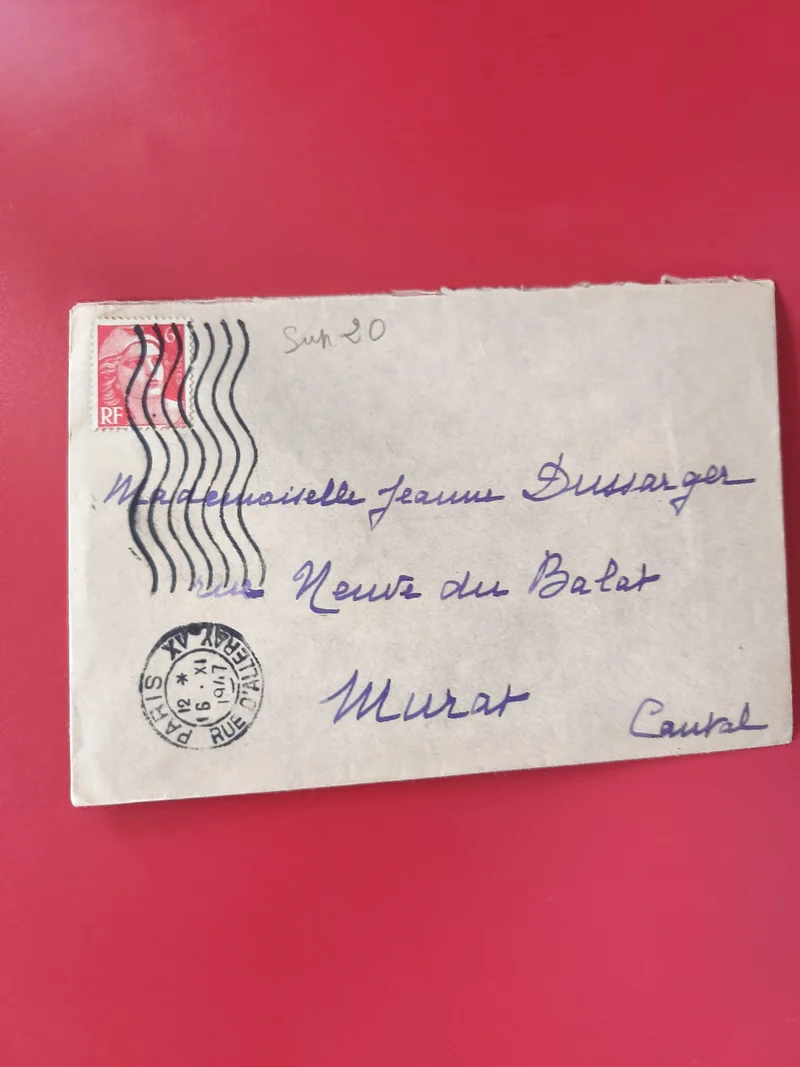 6
RF
Sup 20
Mademoiselle Jeanne Dussarger
rue Neuve du Balat
Murat
Cantal
PARIS XV
RUE D'ALLERAY
12 *
16 . XI
1947